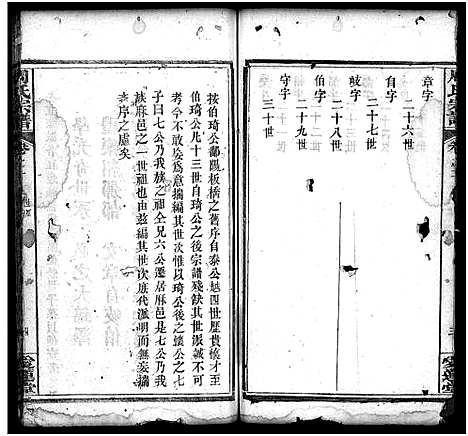 周氏宗譜
章字
二十六世
歧字
二十七世
伯字
二十八世
宥字
二十九世
守字
三十世
愛蓮堂
按伯琦公鄱陽板橋之舊序自泰公四世歷貴懷才
伯琦公凡十三世自琦公之後宗譜殘缺其世派誠不可
考今不敢妄爲意揣編其世次惟以琦公之後懷公之七
子曰七公乃我族之祖兄六公遷居麻邑是七公乃我
族麻邑之一世祖也由茲編其世次庶代派明而無妄揣
失序之虛矣
周氏宗譜
愛蓮堂